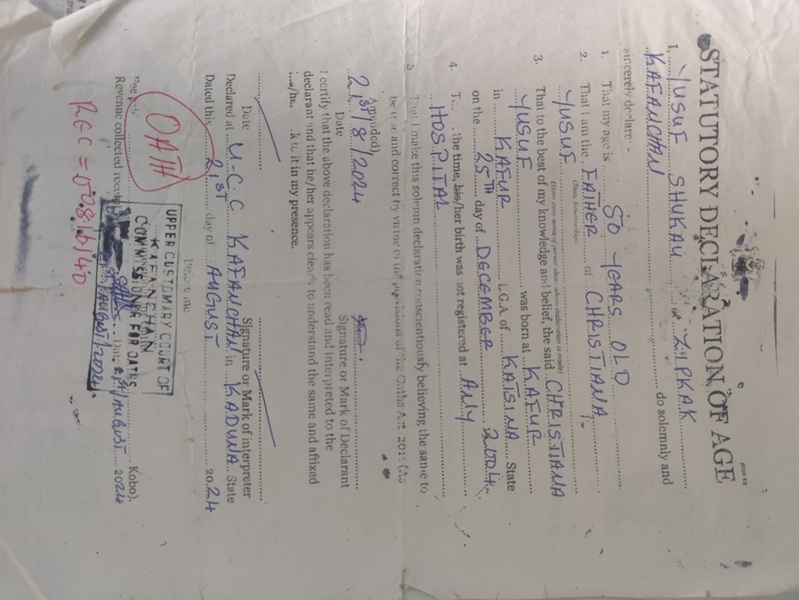 STATUTORY DECLARATION OF AGE
I, YUSUF SHUKAU of ZIPKAK
KAFANCHAN do solemnly and
sincerely declare:-
1. That my age is 50 YEARS OLD
2. That I am the FATHER of CHRISTIANA
YUSUF
3. That to the best of my knowledge and belief, the said CHRISTIANA
YUSUF was born at KAFUR
in KAFUR L.G.A. of KATSINA State
on the 25TH day of DECEMBER 2004
4. the time, his/her birth was not registered at ANY
HOSPITAL
I make this solemn declaration conscientiously believing the same to
be true and correct by virtue of the provisions of the Oaths Act
21st/8/2024
Date Signature or Mark of Declarant
I certify that the above declaration has been read and interpreted to the
declarant and that he/her appears clearly to understand the same and affixed
to it in my presence.
Date Signature or Mark of interpreter
Declared at U.C.C KAFANCHAN in KADUNA State
Dated this 21ST day of AUGUST 2024
OATH
Before me
UPPER CUSTOMARY COURT OF
KAFANCHAN
COMMISSIONER FOR OATHS
Kobo).
Revenue collected 2024
AUGUST/2024